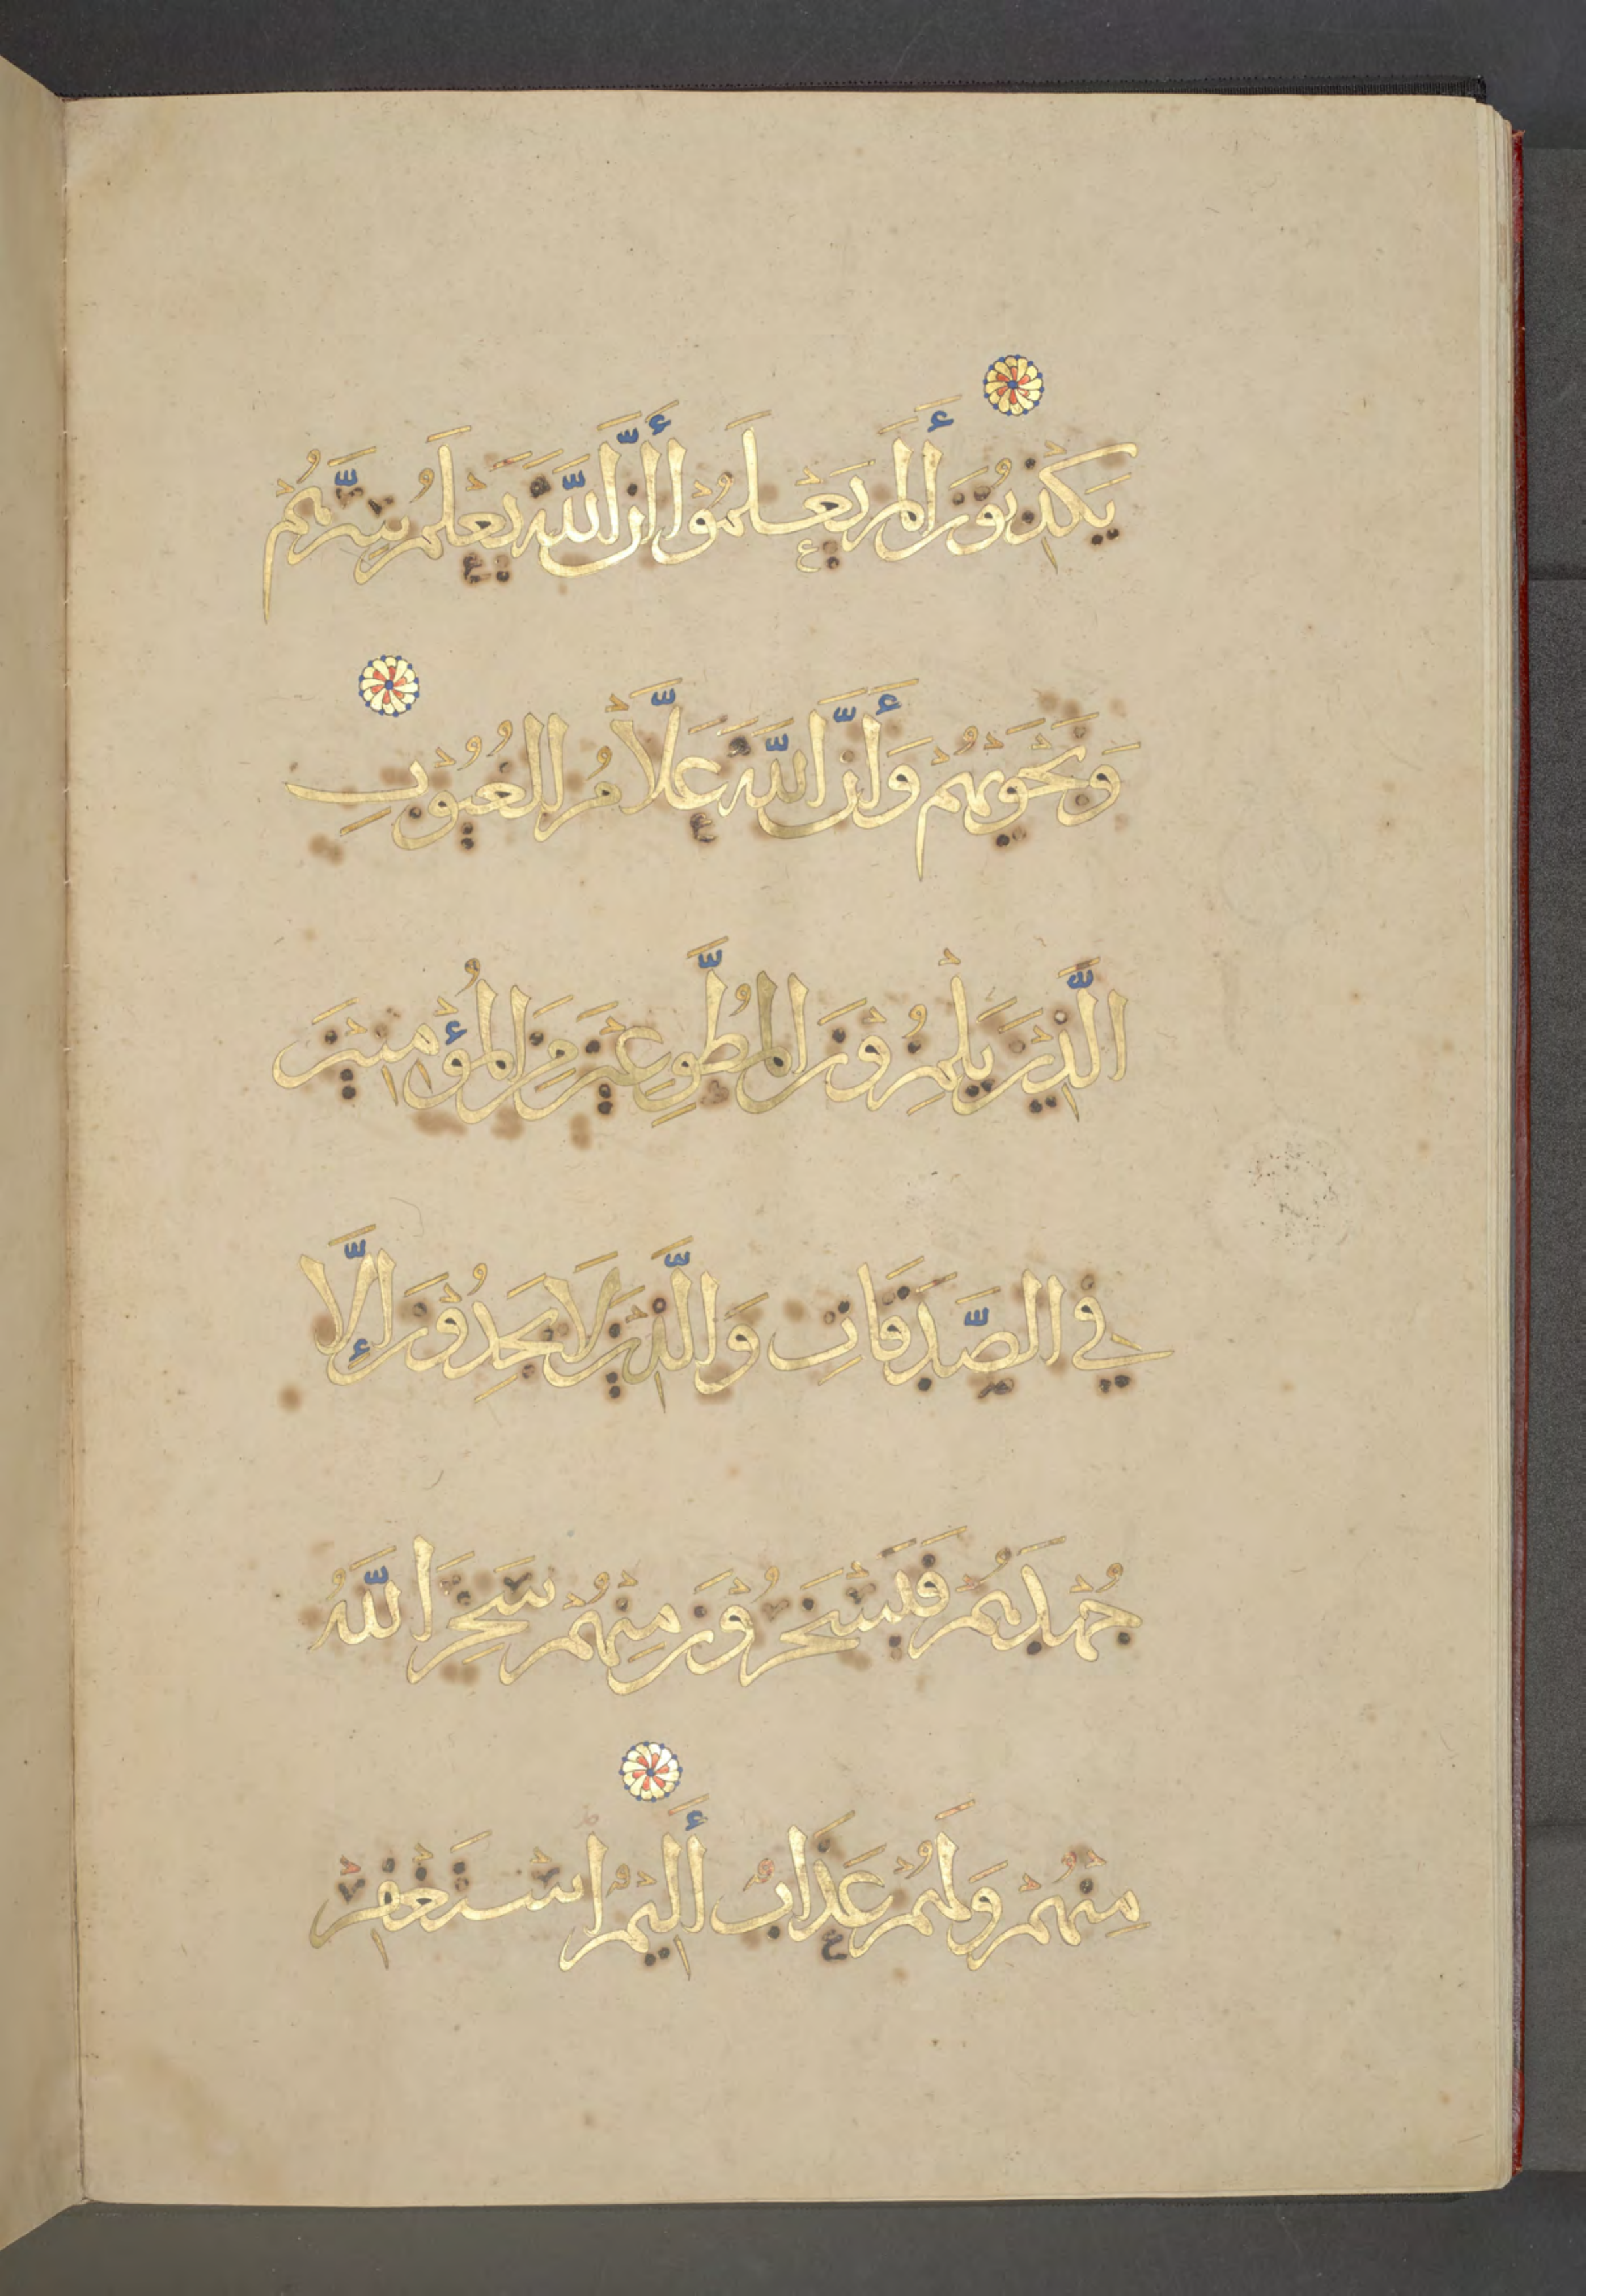 يَكْذِبُوْنَ أَلَمْ يَعْلَمُوْا أَنَّ اللَّهَ يَعْلَمُ سِرَّهُمْ
وَنَجْوَىهُمْ وَأَنَّ اللَّهَ عَلَّامُ الْغُيُوْبِ
الَّذِيْنَ يَلْمِزُوْنَ الْمُطَّوِعِيْنَ مِنَ الْمُؤْمِنِيْنَ
فِي الصَّدَقَاتِ وَالَّذِيْنَ لَا يَجِدُوْنَ إِلَّا
جُهْدَهُمْ فَيَسْخَرُوْنَ مِنْهُمْ سَخِرَ اللَّهُ
مِنْهُمْ وَلَهُمْ عَذَابٌ أَلِيْمٌ اسْتَغْفِرْ